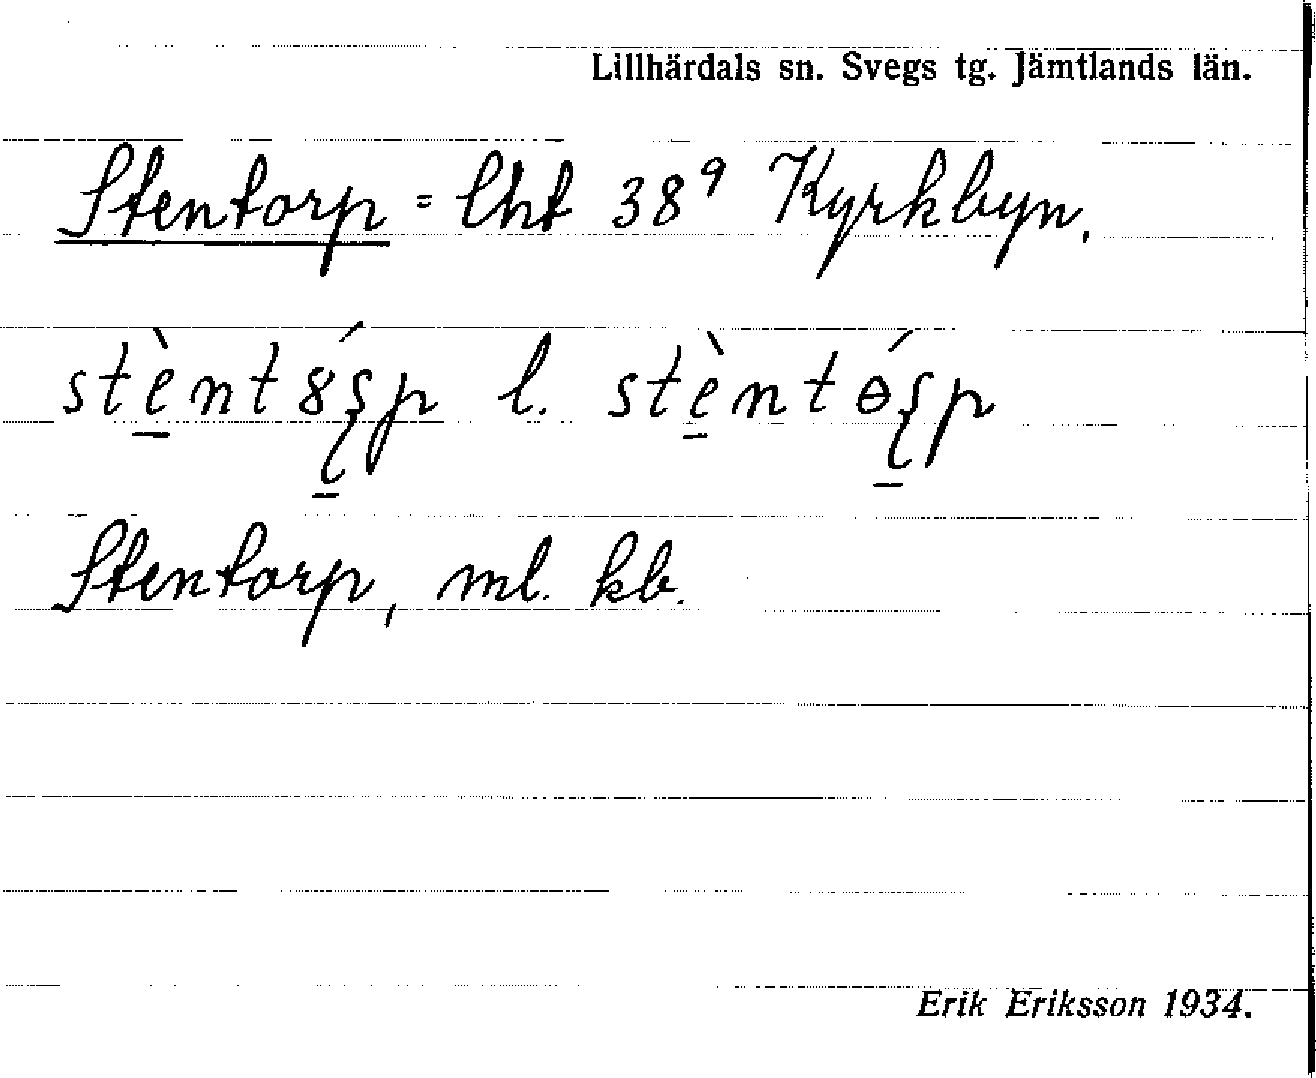 Lillhärdals sn. Svegs tg. Jämtlands län.
Stentorp = lht 38⁹ Kyrkbyn.
l.
Stentorp, ml. kb.
Erik Eriksson 1934.